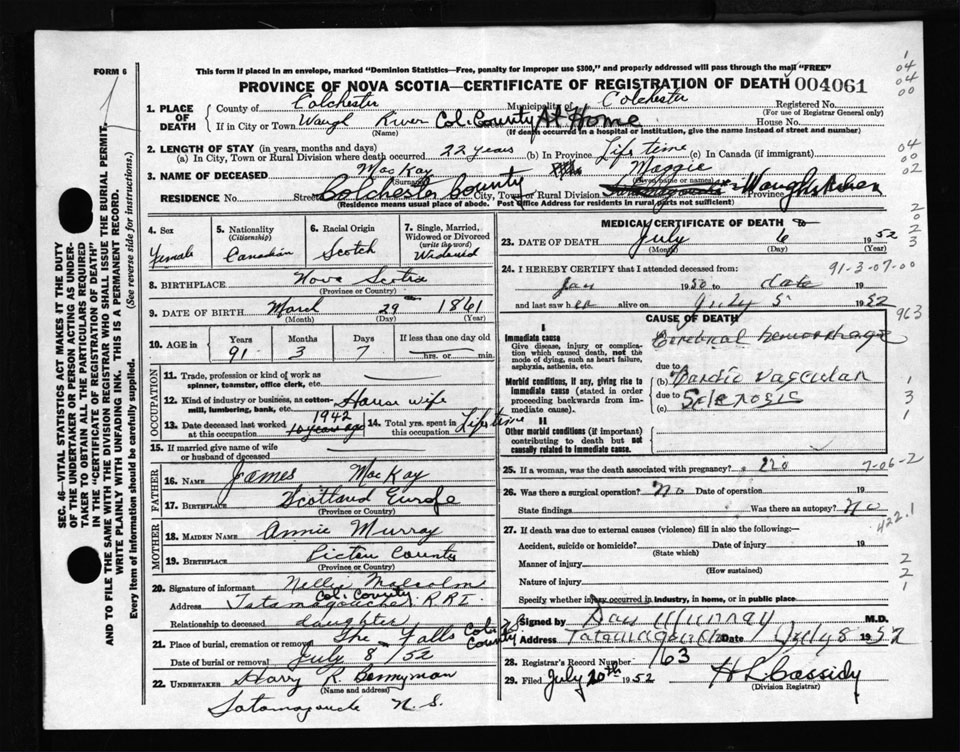 FORM 6
This form if placed in an envelope, marked "Dominion Statistics—Free, penalty for improper use $300," and properly addressed will pass through the mail "FREE"
PROVINCE OF NOVA SCOTIA—CERTIFICATE OF REGISTRATION OF DEATH 004061
1. PLACE OF DEATH County of Colchester Municipality of Colchester Registered No.
(For use of Registrar General only)
If in City or Town Waugh River Col. County At Home House No.
(Name) (If death occurred in a hospital or institution, give the name instead of street and number)
2. LENGTH OF STAY (in years, months and days)
(a) In City, Town or Rural Division where death occurred 22 years (b) In Province Life time (c) In Canada (if immigrant)
3. NAME OF DECEASED MacKay Maggie
(Surname) (Given name or names)
RESIDENCE No. Street Colchester County City, Town or Rural Division Waughs River Province
(Residence means usual place of abode. Post Office Address for residents in rural parts not sufficient)
4. Sex Female
5. Nationality (Citizenship) Canadian
6. Racial Origin Scotch
7. Single, Married, Widowed or Divorced (write the word) Widowed
8. BIRTHPLACE Nova Scotia
(Province or Country)
9. DATE OF BIRTH March 29 1861
(Month) (Day) (Year)
10. AGE in Years 91 Months 3 Days 7 If less than one day old hrs. or min.
OCCUPATION
11. Trade, profession or kind of work as spinner, teamster, office clerk, etc.
12. Kind of industry or business, as cotton-mill, lumbering, bank, etc. House wife
13. Date deceased last worked at this occupation 1942 10 years ago
14. Total yrs. spent in this occupation Life time
15. If married give name of wife or husband of deceased
FATHER
16. NAME James MacKay
17. BIRTHPLACE Scotland Europe
(Province or Country)
MOTHER
18. MAIDEN NAME Annie Murray
19. BIRTHPLACE Pictou County
(Province or Country)
20. Signature of informant Nellie Malcolm
Address Tatamagouche Col. County. R.R.1.
Relationship to deceased daughter
21. Place of burial, cremation or removal The Falls Col. County
Date of burial or removal July 8/52
22. UNDERTAKER Harry R. Bonnyman
(Name and address)
Tatamagouche N.S.
MEDICAL CERTIFICATE OF DEATH
23. DATE OF DEATH July 6 1952
(Month) (Day) (Year)
24. I HEREBY CERTIFY that I attended deceased from:
Jan 1950 to date
and last saw her alive on July 5 1952
CAUSE OF DEATH
I
Immediate cause
Give disease, injury or complication which caused death, not the mode of dying, such as heart failure, asphyxia, asthenia, etc.
Cerebral hemorrhage
due to
Morbid conditions, if any, giving rise to immediate cause (stated in order proceeding backwards from immediate cause).
(b) Cardio vascular
due to
(c) Sclerosis
II
Other morbid conditions (if important) contributing to death but not causally related to immediate cause.
25. If a woman, was the death associated with pregnancy? no
26. Was there a surgical operation? No Date of operation 19
State findings Was there an autopsy? No
27. If death was due to external causes (violence) fill in also the following:—
Accident, suicide or homicide? Date of injury 19
(State which)
Manner of injury
(How sustained)
Nature of injury
Specify whether injury occurred in industry, in home, or in public place
Signed by Dan Murray M.D.
Address Tatamagouche Date July 8 1952
28. Registrar's Record Number 163
29. Filed July 20th 1952 H L Cassidy
(Division Registrar)
SEC. 46—VITAL STATISTICS ACT MAKES IT THE DUTY
OF THE UNDERTAKER OR PERSON ACTING AS UNDER-
TAKER TO OBTAIN ALL THE PARTICULARS REQUIRED
IN THE "CERTIFICATE OF REGISTRATION OF DEATH"
AND TO FILE THE SAME WITH THE DIVISION REGISTRAR WHO SHALL ISSUE THE BURIAL PERMIT.
WRITE PLAINLY WITH UNFADING INK. THIS IS A PERMANENT RECORD.
Every item of information should be carefully supplied. (See reverse side for instructions.)
1
04
04
00
04
00
02
2
0
2
3
91-3-07-00
963
1
3
1
7-06-2
422.1
2
2
1